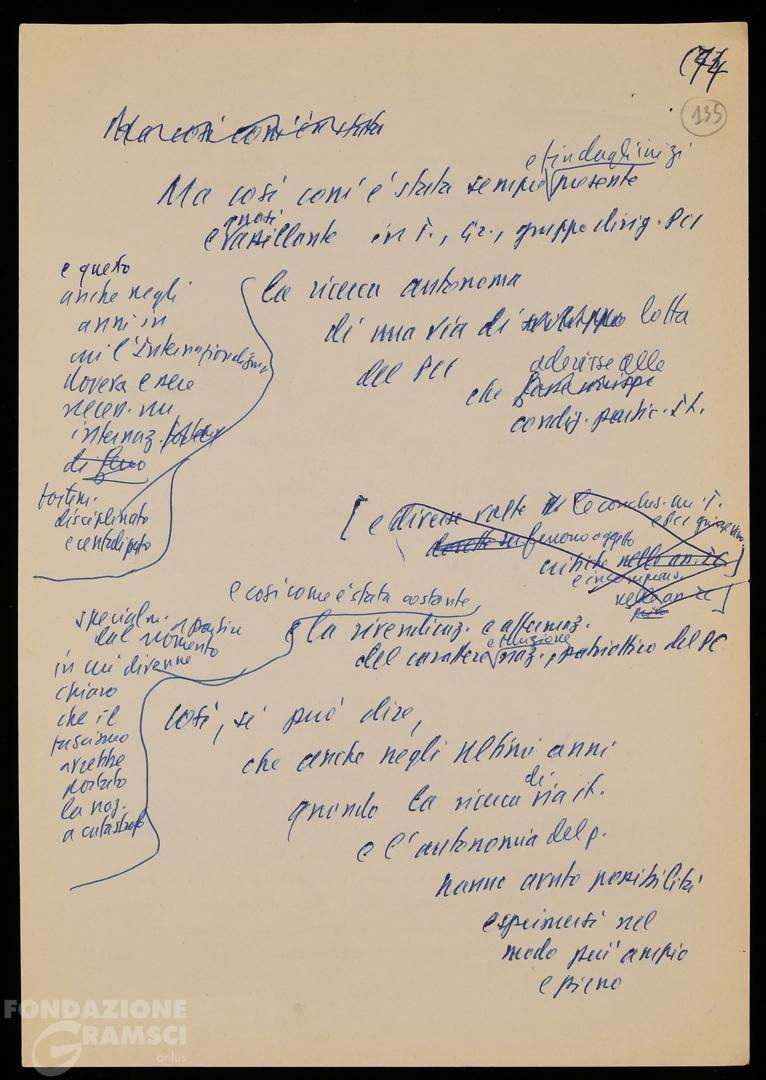 74
135
Ma così com'è stata
e fin dagli inizi
Ma così com'è stata sempre presente
quasi
e assillante in T., Gr., gruppo dirig. PCI
e questo
anche negli
anni in
cui l'Internazionalismo
doveva essere
necess. un
internaz.
di ferro
fortem.
disciplinato
e centralizzato
la ricerca autonoma
di una via di sviluppo lotta
del PCI
che aderisse alle
condiz. partic. it.
[ e diverse volte le conclus. cui T.
e PCI giungevano
furono oggetto
critiche nello an. IC ]
e incomprens.
nello an IC ]
e così come è stata costante,
e la rivendicaz. e affermaz.
e funzione
del carattere naz., patriottico del PC
specialm. a partire
dal momento
in cui divenne
chiaro
che il
fascismo
avrebbe
portato
la naz.
a catastrofe
così, si può dire,
che anche negli ultimi anni
quando la ricerca di via it.
e l'autonomia del p.
hanno avuto possibilità
esprimersi nel
modo più ampio
e pieno
FONDAZIONE
GRAMSCI
onlus